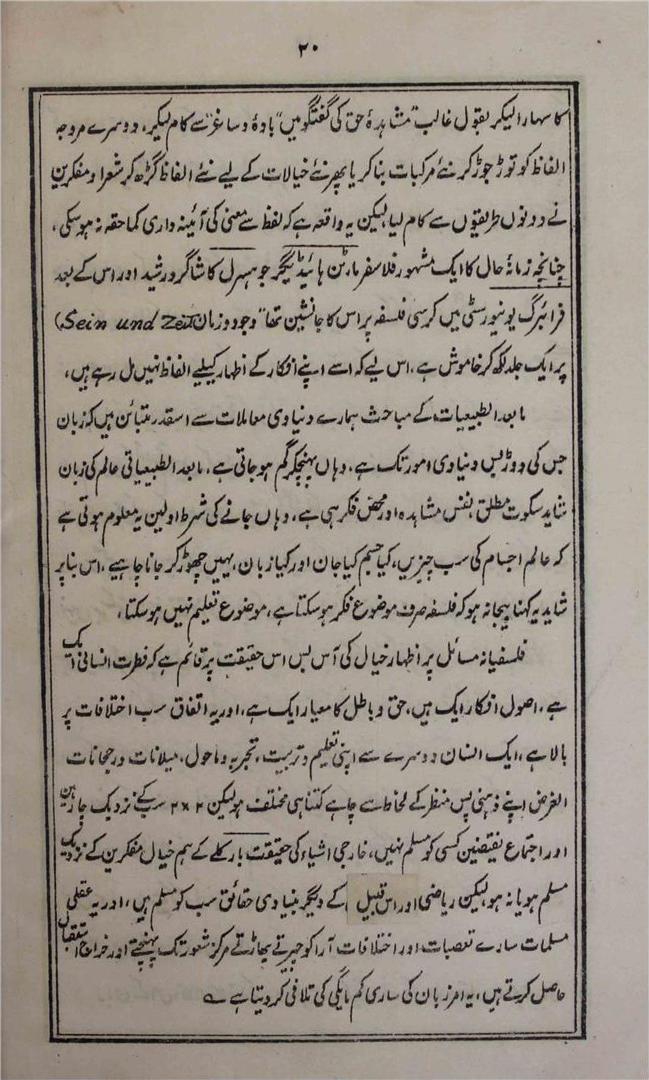 ۲۰
کا سہارا لیکر بقول غالب "مشاہدۂ حق کی گفتگو میں" بادۂ و ساغر" سے کام لیکر، دوسرے مروجہ
الفاظ کو توڑ جوڑ کر نئے مرکبات بنا کر یا پھر نئے خیالات کے لیے نئے الفاظ گڑھ کر شعرا و مفکرین
نے دونوں طریقوں سے کام لیا، لیکن یہ واقعہ ہے کہ لفظ سے معنی کی آئینہ داری کماحقہ نہ ہوسکی،
چنانچہ زمانۂ حال کا ایک مشہور فلاسفر مارٹن ہائیڈیگر جو ہسرل کا شاگرد رشید اور اس کے بعد
فرائبرگ یونیورسٹی میں کرسی فلسفہ پر اس کا جانشین تھا "وجود و زمان (Sein und Zeit)
پر ایک جلد لکھ کر خاموش ہے، اس لیے کہ اسے اپنے افکار کے اظہار کیلیے الفاظ نہیں مل رہے ہیں،
مابعد الطبیعیات کے مباحث ہمارے دنیاوی معاملات سے اسقدر متبائن ہیں کہ زبان
جس کی دوڑ بس دنیاوی امور تک ہے، وہاں پہنچکر گم ہو جاتی ہے، مابعد الطبیعیاتی عالم کی زبان
شاید سکوت مطلق بنفس مشاہدہ اور محض فکر ہی ہے، وہاں جانے کی شرط اولین یہ معلوم ہوتی ہے
کہ عالم اجسام کی سب چیزیں، کیا جسم کیا جان اور کیا زبان، یہیں چھوڑ کر جانا چاہیے، اس بنا پر
شاید یہ کہنا بیجا نہ ہو کہ فلسفہ صرف موضوع فکر ہوسکتا ہے، موضوع تعلیم نہیں ہوسکتا،
فلسفیانہ مسائل پر اظہار خیال کی آس بس اس حقیقت پر قائم ہے کہ فطرت انسانی ایک
ہے، اصول افکار ایک ہیں، حق و باطل کا معیار ایک ہے، اور یہ اتفاق سب اختلافات پر
بالا ہے، ایک انسان دوسرے سے اپنی تعلیم و تربیت، تجربہ و ماحول، میلانات و رجحانات
الغرض اپنے ذہنی پس منظر کے لحاظ سے چاہے کتنا ہی مختلف ہو لیکن ۲×۲ سب کے نزدیک چار ہیں
اور اجتماع نقیضین کسی کو مسلم نہیں، خارجی اشیاء کی حقیقت بارکلے کے ہم خیال مفکرین کے نزدیک
مسلم ہو یا نہ ہو لیکن ریاضی اور اس قبیل کے دیگر بنیادی حقائق سب کو مسلم ہیں، اور یہ عقلی
مسلمات سارے تعصبات اور اختلافات آرا کو چیرتے پھاڑتے مرکز شعور تک پہنچتے اور خراج استقبال
حاصل کرتے ہیں، یہ امر زبان کی ساری کم مایگی کی تلافی کر دیتا ہے ے